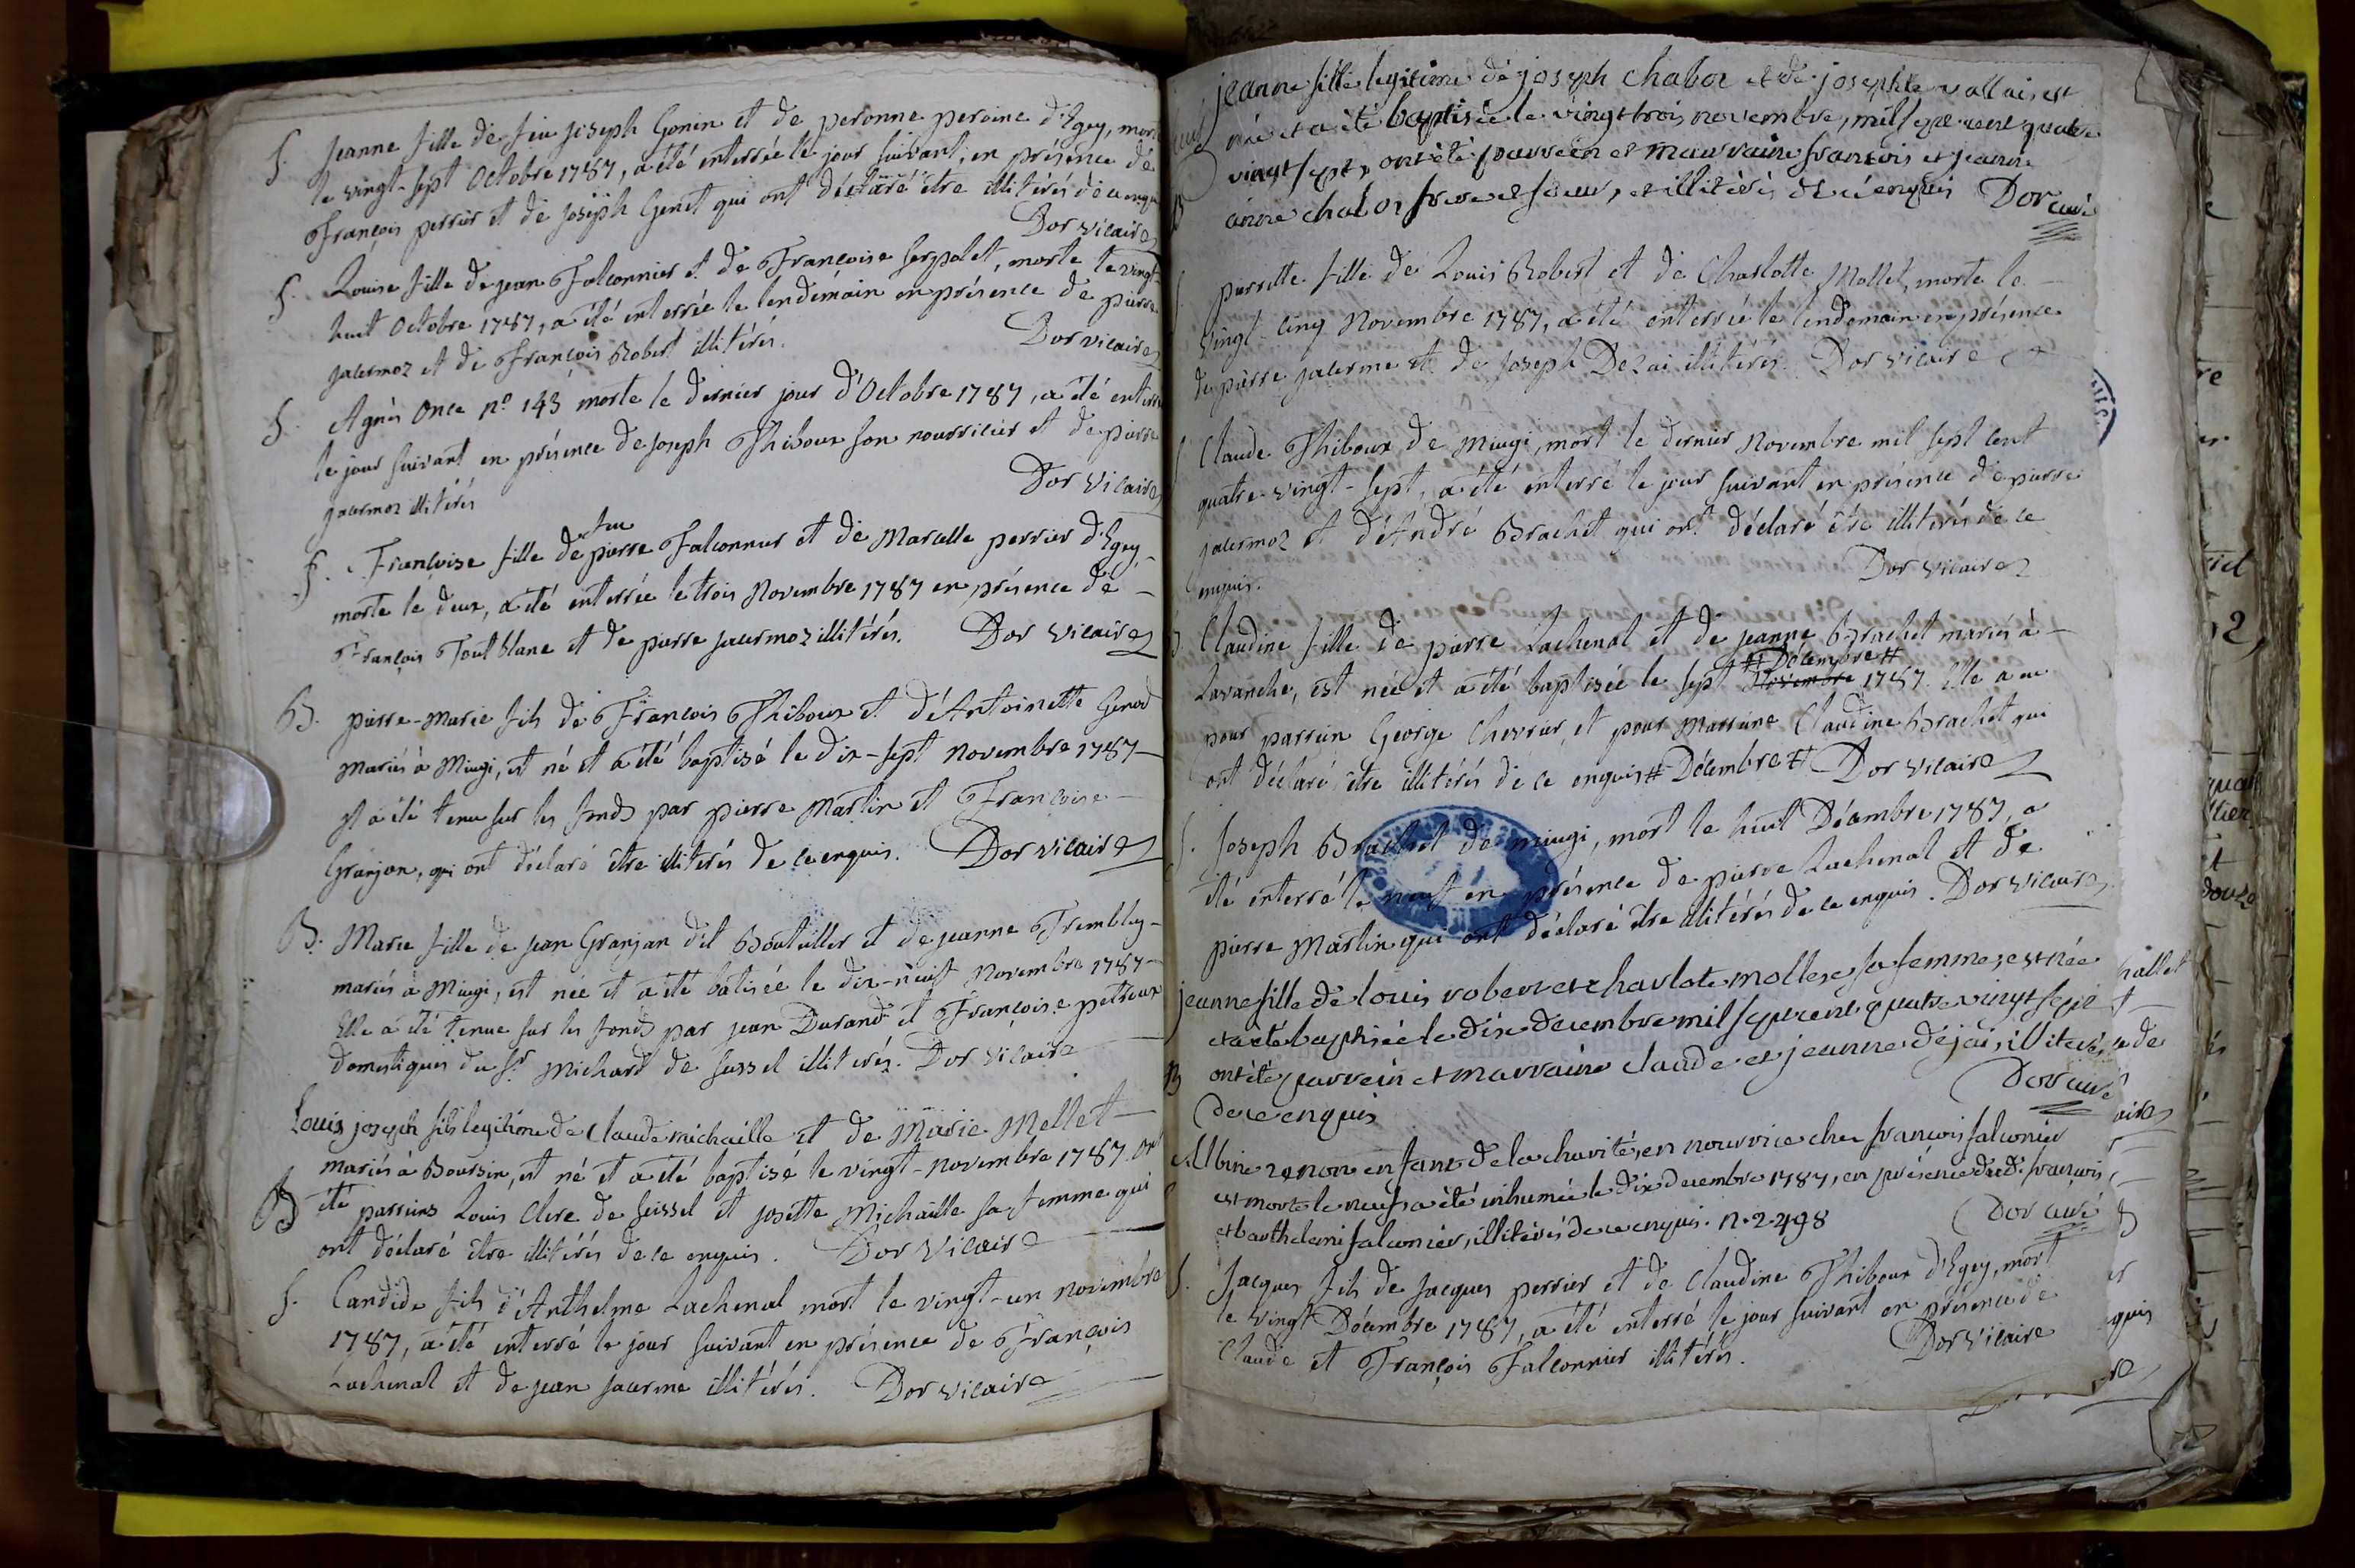 S. Jeanne fille de feu joseph Gonin et de peronne peroine d'Egey, morte
le vingt-sept Octobre 1787, a été enterrée le jour suivant, en présence de
François perrier et de joseph Genet qui ont déclaré être illitérés de ce enquis
Dor vicaire
S. Louise fille de jean Falconnier et de Françoise Serpolet, morte le vingt-
huit Octobre 1787, a été enterrée le lendemain en présence de pierre
jacermoz et de François Robert illitérés. Dor vicaire
S. Agnès Once n° 143 morte le dernier jour d'Octobre 1787, a été enterrée
le jour suivant en présence de joseph Thiboux son nourricier et de pierre
jacermoz illitérés Dor vicaire
S. Françoise fille de feu pierre Falconnier et de Marcelle perrier d'Egey,
morte le deux, a été enterrée le trois Novembre 1787 en présence de
François Tout blanc et de pierre jacermoz illitérés. Dor vicaire
B. pierre-marie fils de François Thiboux et d'Antoinette Genod
mariés à Mieugi, est né et a été baptisé le dix-sept novembre 1787
Il a été tenu sur les fonds par pierre Martin et Françoise
Granjon, qui ont déclaré être illitérés de ce enquis. Dor vicaire
B. Marie fille de jean Granjan dit Boutiller et de jeanne Trembley
mariés à Mieugi, est née et a été batisée le dix-neuf Novembre 1787
Elle a été tenue sur les fonds par jean Durand et Françoise petreux
domestiques du Sr. Michard de Sessel illitérés. Dor vicaire
Louis joseph fils legitime de Claude michaille et de Marie Mellet
mariés à Boursin, est né et a été baptisé le vingt-novembre 1787. ont
B été parreins Louis Clere de Seissel et josette Michaille sa femme qui
ont déclaré être illitérés de ce enquis. Dor vicaire
S. Candide fils d'Anthelme Lachenal mort le vingt-un novembre
1787, a été enterré le jour suivant en présence de François
Lachenal et de jean jacerme illitérés. Dor vicaire
jeanne fille legitime de joseph chabot et de josephte vallais est
née et a été baptisée le vingt trois novembre, mil sept cent quatre
vingt sept, ont été parrein et marraine francois et jeanne
anne chabot frere et soeur, et illitérés de ce enquis Dor curé
perrette fille de Louis Robert et de Charlotte Mollet, morte le
vingt-cinq Novembre 1787, a été enterrée le lendemain en présence
de pierre jacerme et de joseph Dezai illitérés. Dor vicaire
Claude Thiboux de Mieugi, mort le dernier Novembre mil sept cent
quatre-vingt-sept, a été enterré le jour suivant en présence de pierre
jacermoz et d'André Brachet qui ont déclaré être illitérés de ce
enquis. Dor vicaire
Claudine fille de pierre Lachenal et de jeanne Brachet mariés à
Lavanche, est née et a été baptisée le sept Novembre # Décembre # 1787. Elle a eu
pour parrein George Chevrier, et pour Marreine Claudine Brachet qui
ont déclaré être illitérés de ce enquis # Décembre # Dor vicaire
S. Joseph Brachet de mieugi, mort le huit Décembre 1787, a
été enterré le neuf en présence de pierre Lachenal et de
pierre Martin qui ont déclaré être illitérés de ce enquis. Dor vicaire
jeanne fille de louis robert et charlote mollet sa femme, est née
et a été baptisée le dix decembre mil sept cent quatre vingt sept
B ont été parrein et marraine claude et jeanne dejai, illiterés
de ce enquis Dor curé
Albine enfant de la charité, en nourrice chez françois falconier
est morte le neuf a été inhumée le dix decembre 1787, en présence dud. françois
et barthelemi falconier, illitérés de ce enquis. n. 2498 Dor curé
S. Jacques fils de Jacques perrier et de Claudine Thiboux d'Egey, mort
le vingt Décembre 1787, a été enterré le jour suivant en présence de
Claude et François Falconnier illitérés. Dor vicaire